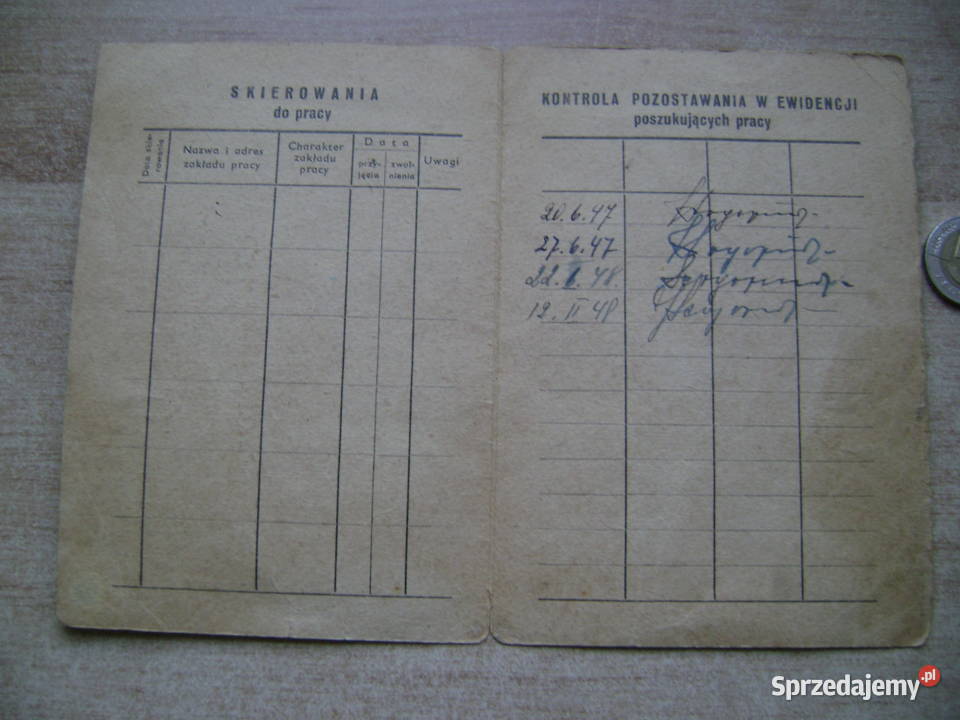 SKIEROWANIA
do pracy
Data skie-
rowania
Nazwa i adres
zakładu pracy
Charakter
zakładu
pracy
Data
przy-
jęcia
zwol-
nienia
Uwagi
KONTROLA POZOSTAWANIA W EWIDENCJI
poszukujących pracy
20.6.47
27.6.47
22.I.48.
12.II 48
Sprzedajemy.pl